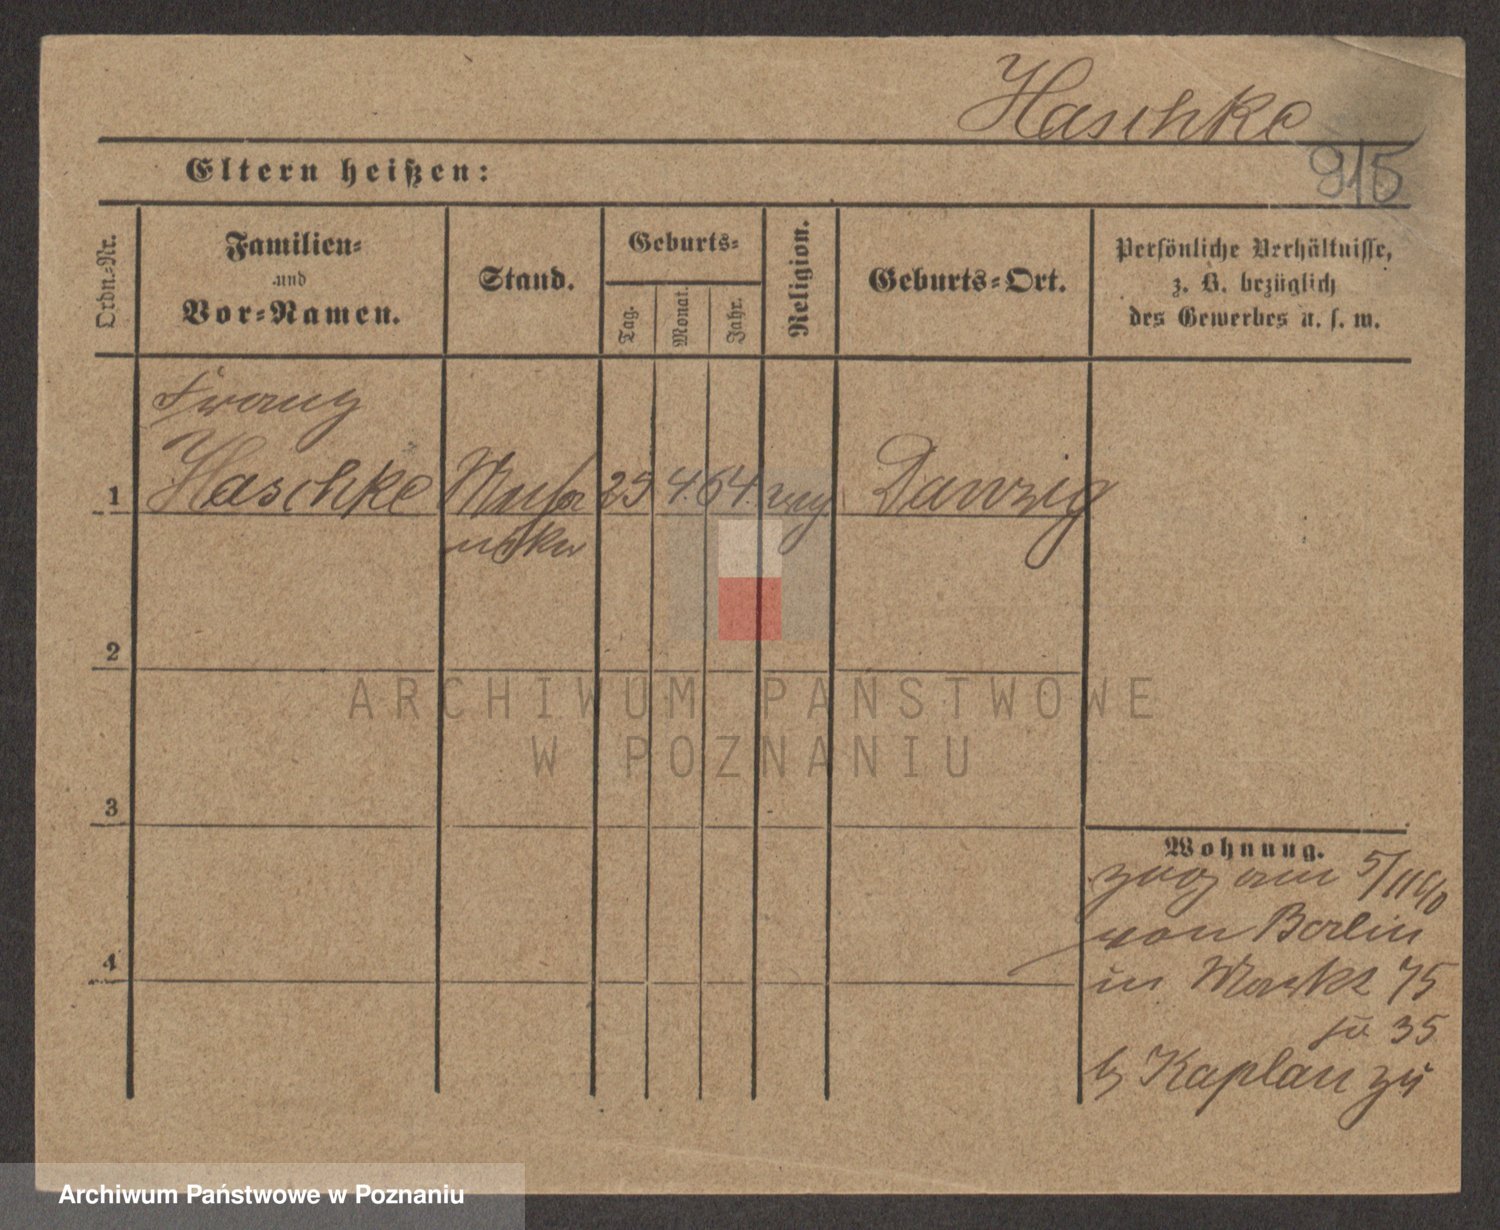 Haschke
Eltern heißen:
915
Ordn.-Nr.
Familien-
und
Vor-Namen.
Stand.
Geburts-
Tag.
Monat.
Jahr.
Religion.
Geburts-Ort.
Persönliche Verhältnisse,
z. B. bezüglich
des Gewerbes u. s. w.
Franz
1 Haschke 4. 64. Danzig
2
3
4
Wohnung.
zog am 5/11
von Berlin
in Markt 75
35
b Kaplan zu
ARCHIWUM PAŃSTWOWE
W POZNANIU
Archiwum Państwowe w Poznaniu